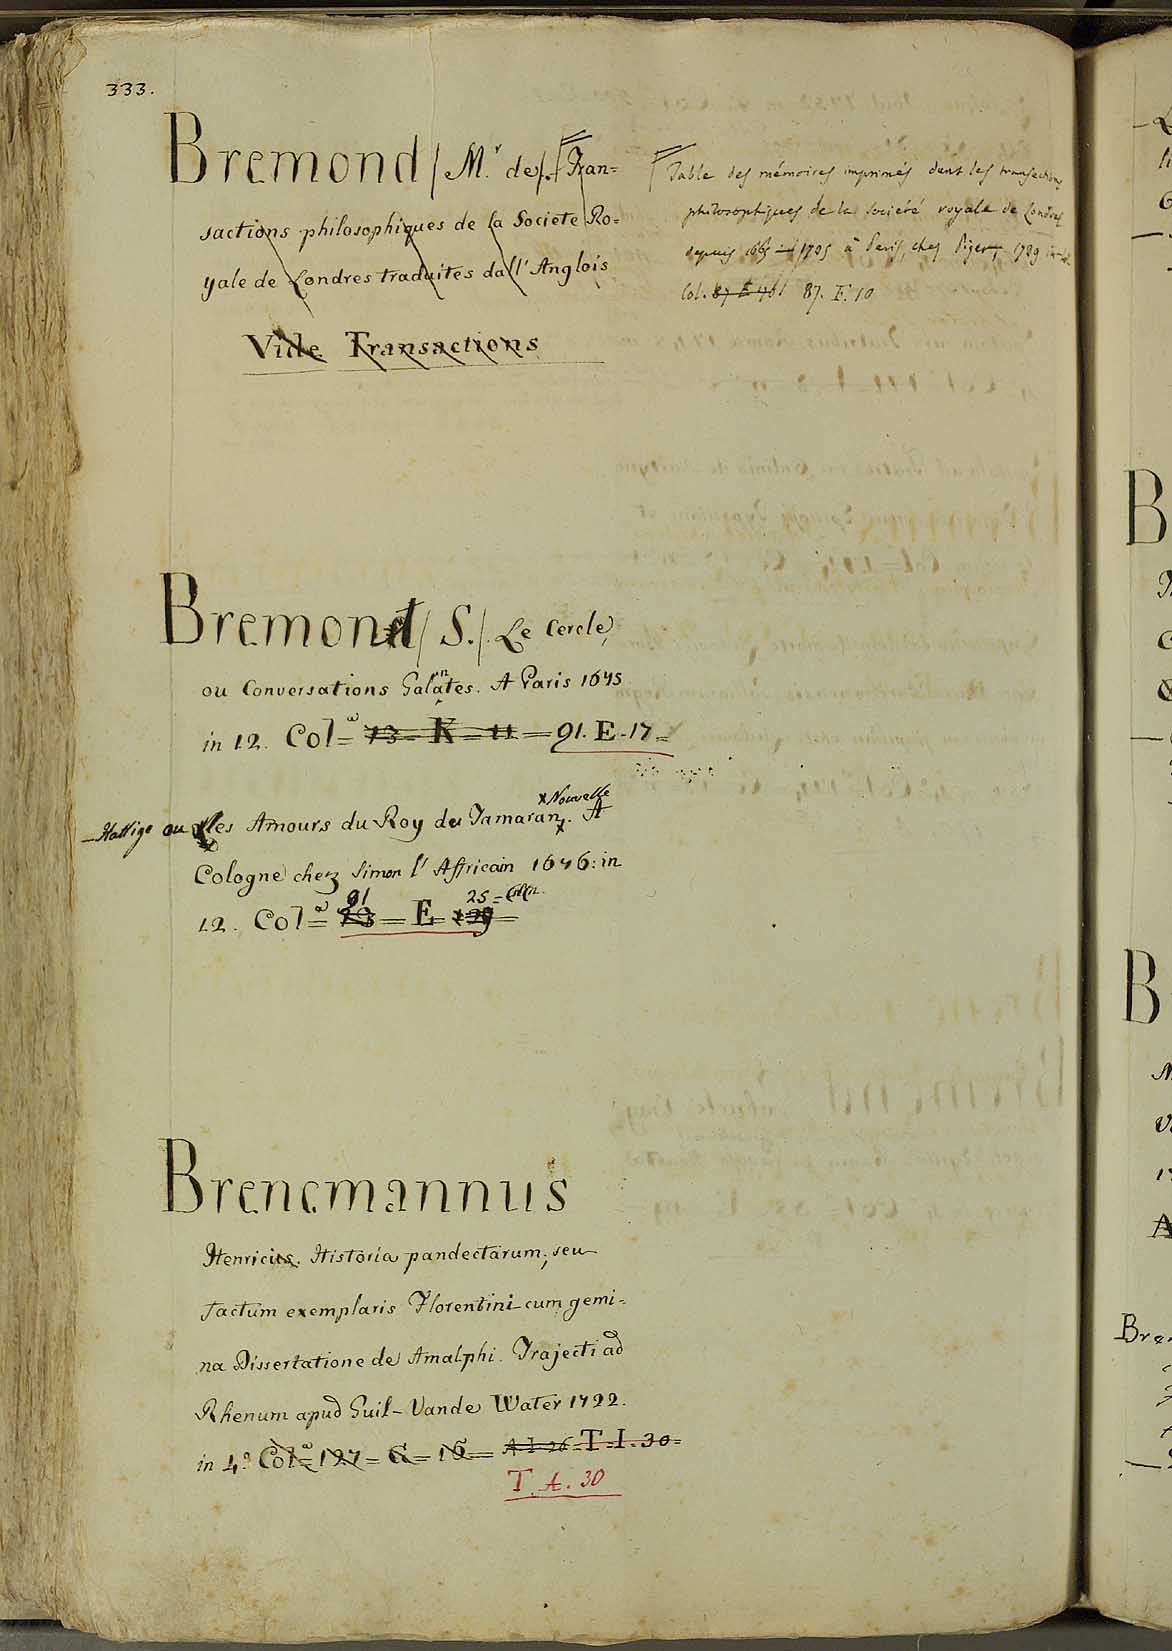 333.
Bremond / Mr. de /. Tran=
sactions philosophiques de la Societe Ro=
yale de Londres traduites dall' Anglois
Vide Transactions
Table des mémoires imprimés dans les transactions
philosophiques de la societé royale de Londres
depuis 1665 1735 à Paris, chez Piget, 1739 in-4
Col. 87 E 40 87. E. 10
Bremont / S. /. Le Cercle,
ou Conversations Galantes. A Paris 1675
in 12. Col=a 73 = K = 11 = 91. E. 17=
Nouvelle
Hattige ou les Amours du Roy de Tamaran. A
Cologne chez Simon l' Affricain 1676: in
91 25 =
12. Col=a = E =
Brencmannus
Henricus. Historia pandectarum, seu
factum exemplaris Florentini cum gemi=
na Dissertatione de Amalphi. Trajecti ad
Rhenum apud Guil- Vande Water 1722.
in 4.o Col=a 127 = G = 15 = A I 26 = T. I. 30=
T. A. 30